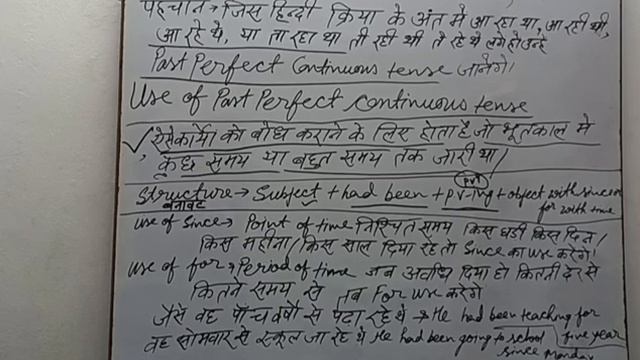 पहचान → जिस हिन्दी क्रिया के अंत में आ रहा था, आ रही थी,
आ रहे थे, या ता रहा था ती रही थी ते रहे थे लगे हो उन्हें
Past Perfect Continuous tense जानेंगे।
Use of Past Perfect continuous tense
✓ ऐसे कार्यो को बोध कराने के लिए होता है जो भूतकाल मे
कुछ समय या बहुत समय तक जारी था /
Structure → Subject + had been + PV-ing + object with since or
बनावट
for with time
use of Since → Point of time निश्चित समय किस घडी किस दिन /
किस महीना / किस साल दिया रहे तो Since का use करेंगे।
use of for → Period of time जब अवधि दिया हो कितनी देर से
कितने समय से तब For use करेंगे
जैसे वह पाँच वर्षो से पढा रहे थे → He had been teaching for
five year
वह सोमवार से स्कूल जा रहे थे He had been going to school
since Monday